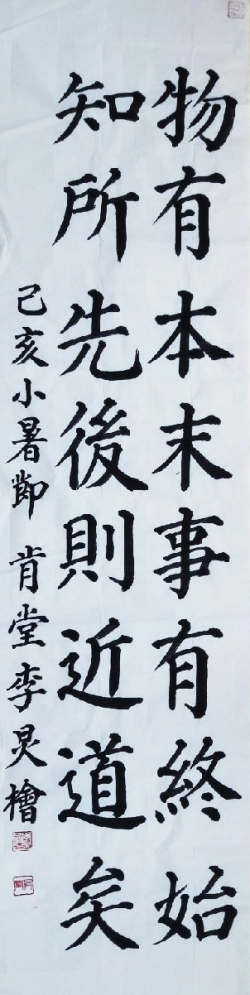 物有本末事有終始
知所先後則近道矣
己亥小暑節 肯堂李炅檜